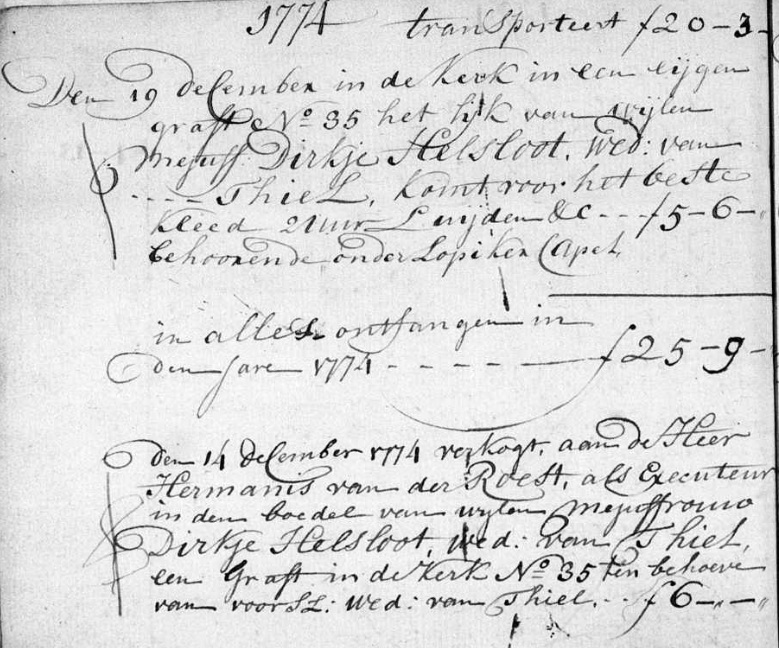 1774 transporteert f 20-3-
Den 19 december in de Kerk in een eijgen
graft No 35 het lijk van wijlen
mejuff: Dirkje Helsloot, Wed: van
---- Thiel, komt voor het beste
kleed 2 uur Luijden &c -- f 5-6-"
behoorende onder Lopiker Capel,
in alles ontfangen in
den Jare 1774 - - - - - f 25-9-
Den 14 december 1774 verkogt, aan de Heer
Hermanis van der Roest, als Executeur
in den boedel van wijlen mejuffrouw
Dirkje Helsloot, wed: van Thiel,
een Graft in de Kerk No 35 ten behoeve
van voorsz: Wed: van Thiel, -- f 6-"-"